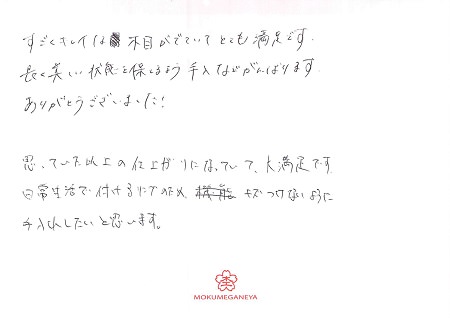 すごくキレイな木目がでていてとても満足です。
長く美しい状態を保てるよう手入れなどがんばります。
ありがとうございました!
思っていた以上の仕上がりになっていて、大満足です。
日常生活で付けるリングのため、キズつけないように
手入れしたいと思います。
杢
MOKUMEGANEYA